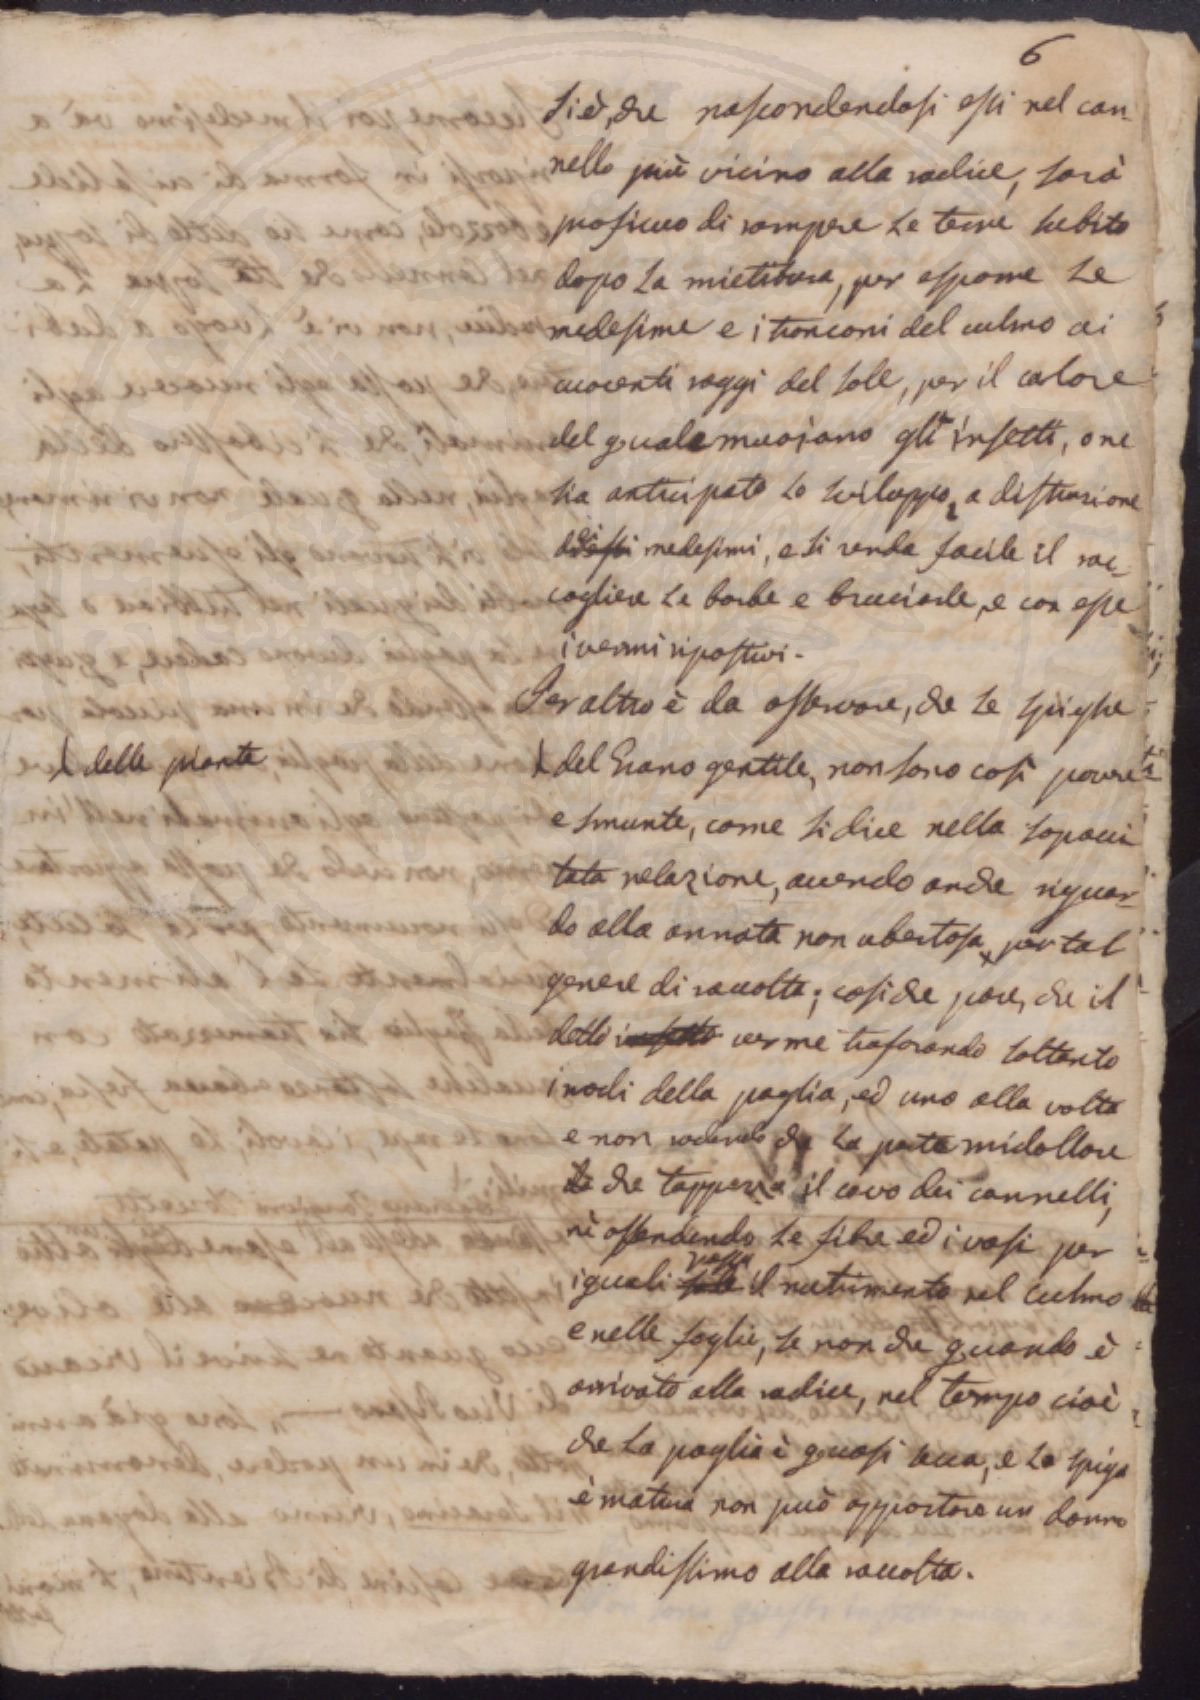 6
si è, che nascondendosi essi nel can-
nello più vicino alla radice, sarà
proficuo di rompere le terre subito
dopo la mietitura, per esporre le
medesime e i tronconi del culmo ai
cuocenti raggi del sole, per il calore
del quale muoiano gli insetti, o ne
sia anticipato lo sviluppo, a distruzione
di essi medesimi, e si renda facile il rac-
cogliere le barbe e bruciarle, e con esse
i vermi ripostivi.
Per altro è da osservare, che le spighe
delle piante
del Grano gentile, non sono così povere
e smunte, come si dice nella sopracci
tata relazione, avendo anche riguar-
do alla annata non ubertosa per tal
genere di raccolta; cosiche pare, che il
detto insetto verme traforando soltanto
i nodi della paglia, ed uno alla volta
e non rodendo che la parte midollare
che il cavo dei cannelli,
nè offendendo le fibre ed i vasi per
passa
i quali sale il nutrimento nel culmo
e nelle foglie, se non che quando è
arrivato alla radice, nel tempo cioè
che la paglia è quasi secca, e la spiga
è matura non può apportare un danno
grandissimo alla raccolta.